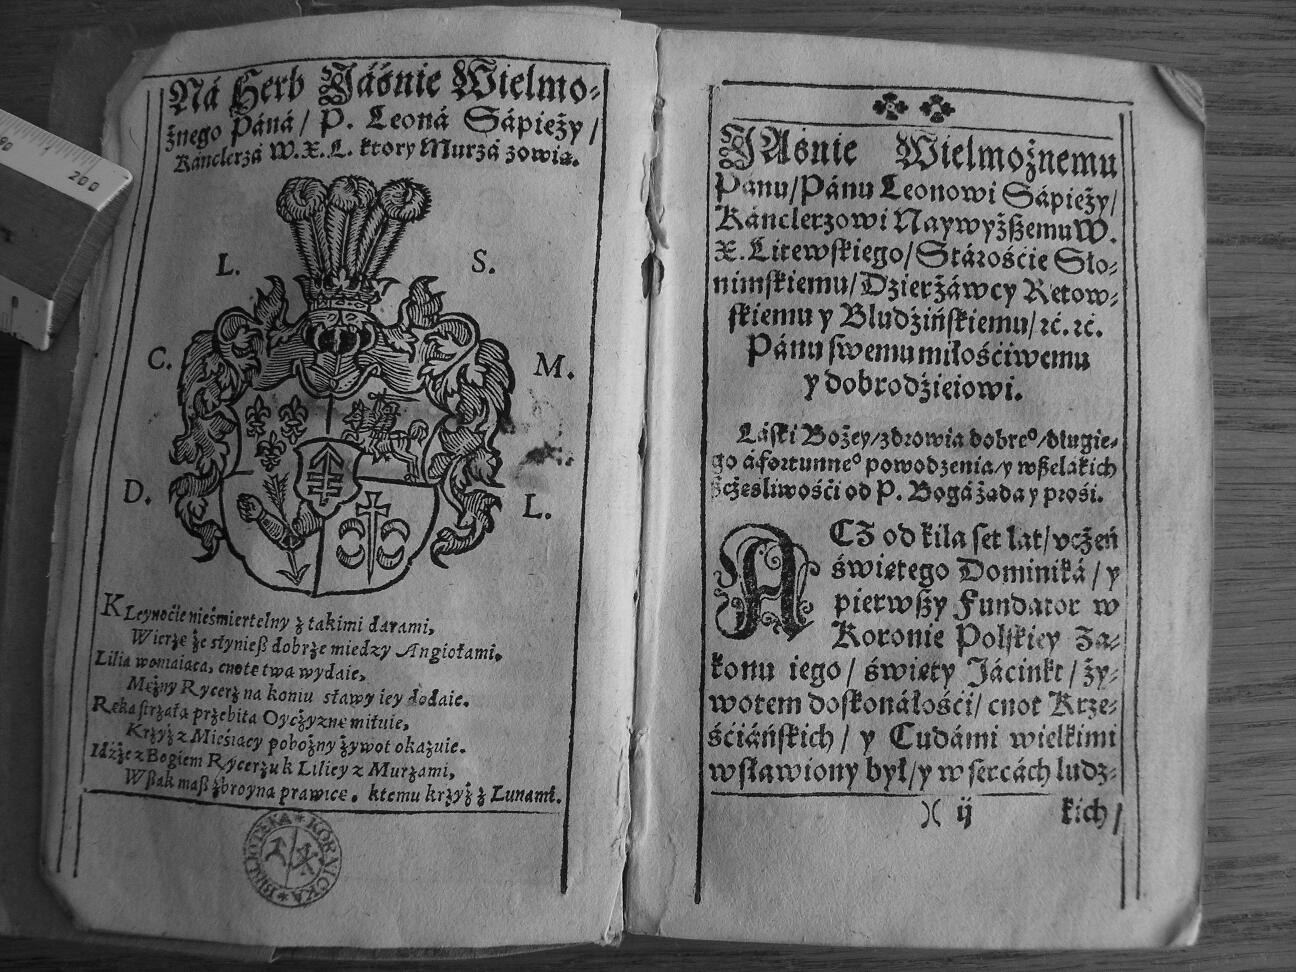 Ná Herb Jáśnie Wielmo-
żnego Páná / P. Leoná Sápieży /
Kánclerzá W.X.L. ktory Murzá zowią.
L. S.
C. M.
D. L.
KLeynoćie nieśmiertelny z takimi darami,
Wierzę że słynieß dobrże miedzy Angiołami.
Lilia woniaiąca, cnotę twą wydaie,
Mężny Rycerz na koniu sławy iey dodaie.
Ręka strzałą przebita Oyczyznę miłuie,
Krzyż z Mieśiący pobożny żywot okazuie.
Idźże z Bogiem Rycerzu k Liliey z Murzami,
Wßak maß zbroyną prawicę, ktemu krzyż z Lunami.
BIBLIOTEKA * KÓRNICKA *
JAśnie Wielmożnemu
Pánu/Pánu Leonowi Sápieży/
Kánclerzowi Naywyżßemu W.
X. Litewskiego/Stárośćie Sło-
nimskiemu/Dzierżáwcy Retow-
skiemu y Bludźińskiemu/ ꝛć. ꝛć.
Pánu swemu miłośćiwemu
y dobrodźieiowi.
Łáski Bożey/zdrowia dobreº/długie-
go á fortunneº powodzenia/y wßelákich
ßcżęsliwośći od P. Bogá żąda y prośi.
ACZ od kila set lat/vcżeń
świętego Dominiká / y
pierwßy Fundator w
Koronie Polskiey Za-
konu iego / święty Jácinkt / ży-
wotem doskonáłośći/ cnot Krze-
śćiáńskich / y Cudámi wielkimi
wsławiony był/y w sercách ludz-
)( ij kich/